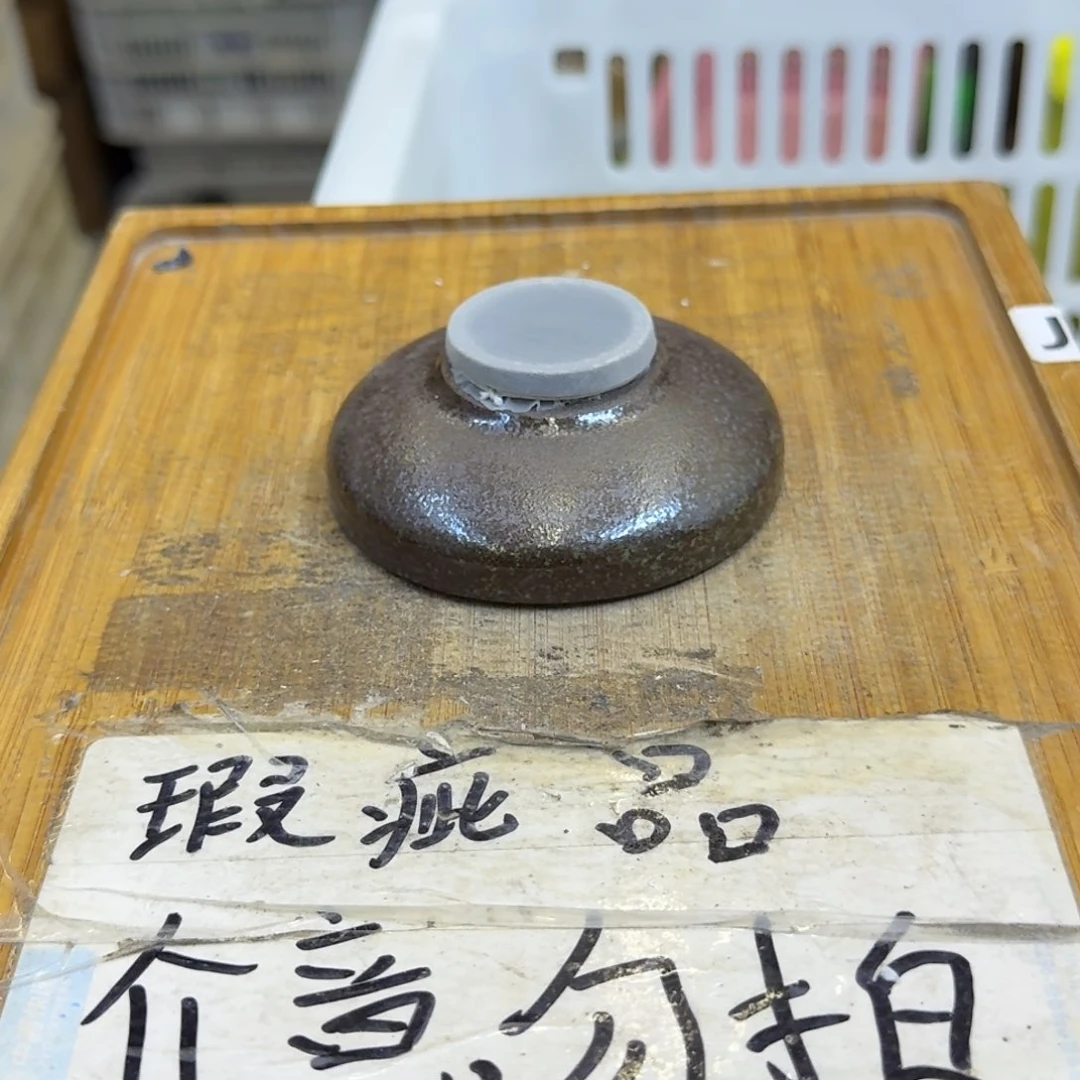 J
瑕疵品
介意勿拍